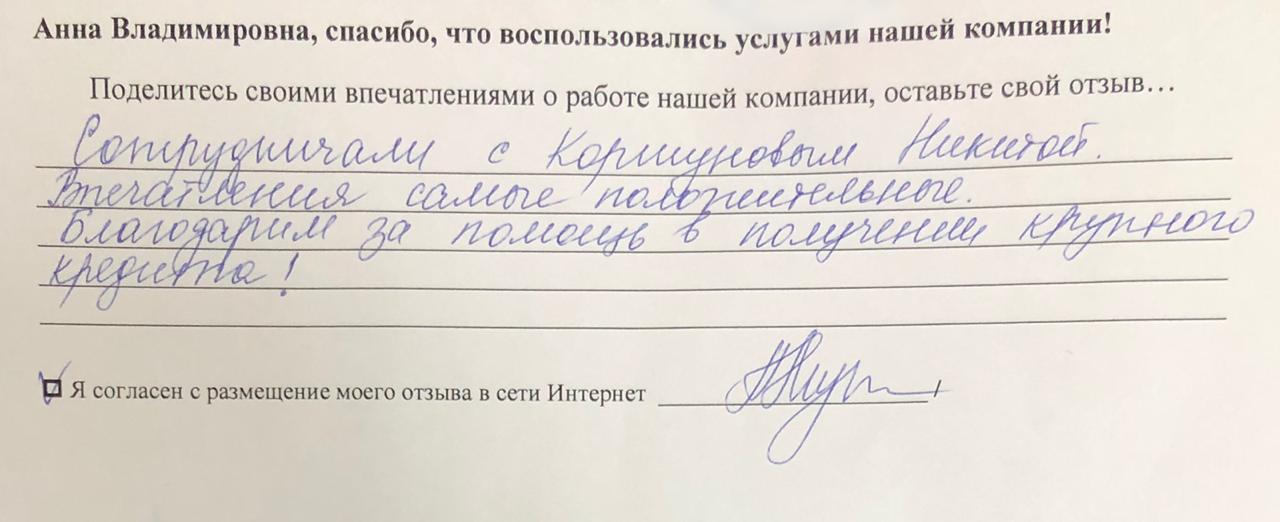 Анна Владимировна, спасибо, что воспользовались услугами нашей компании!
Поделитесь своими впечатлениями о работе нашей компании, оставьте свой отзыв...
Сотрудничали с Коршуновым Никитой.
Впечатления самые положительные.
Благодарим за помощь в получении крупного
кредита!
Я согласен с размещение моего отзыва в сети Интернет